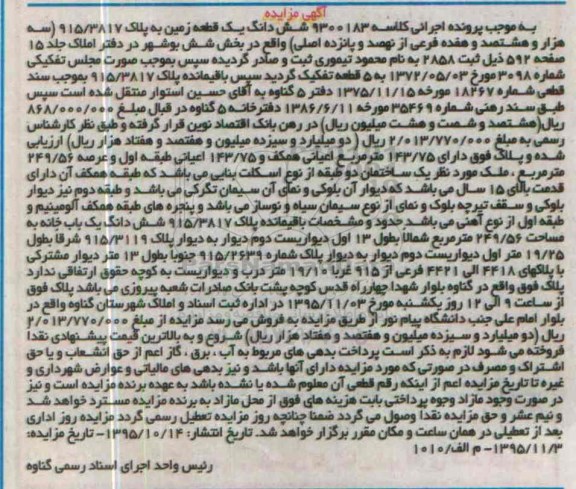 آگهی مزایده
به موجب پرونده اجرائی کلاسه ۹۳۰۰۱۸۳ شش دانگ یک قطعه زمین به پلاک ۹۱۵/۳۸۱۷ (سه
هزار و هشتصد و هفده فرعی از نهصد و پانزده اصلی) واقع در بخش شش بوشهر در دفتر املاک جلد ۱۵
صفحه ۵۹۲ ذیل ثبت ۲۸۵۸ به نام محمود تیموری ثبت و صادر گردیده سپس بموجب صورت مجلس تفکیکی
شماره ۳۰۹۸ مورخ ۱۳۷۲/۰۵/۰۳ به ۵ قطعه تفکیک گردید سپس باقیمانده پلاک ۹۱۵/۳۸۱۷ بموجب سند
قطعی شماره ۱۸۲۶۷ مورخه ۱۳۷۵/۱۱/۱۵ دفتر ۵ گناوه به آقای حسین استوار منتقل شده است سپس
طبق سند رهنی شماره ۳۵۴۶۹ مورخه ۱۳۸۶/۶/۱۱ دفترخانه ۵ گناوه در قبال مبلغ ۸۶۸/۰۰۰/۰۰۰
ریال(هشتصد و شصت و هشت میلیون ریال) در رهن بانک اقتصاد نوین قرار گرفته و طبق نظر کارشناس
رسمی به مبلغ ۲/۰۱۳/۷۷۰/۰۰۰ ریال ( دو میلیارد و سیزده میلیون و هفتصد و هفتاد هزار ریال) ارزیابی
شده و پلاک فوق دارای ۱۴۳/۷۵ مترمربع اعیانی همکف و ۱۴۳/۷۵ اعیانی طبقه اول و عرصه ۲۴۹/۵۶
مترمربع ، ملک مورد نظر یک ساختمان دو طبقه از نوع اسکلت بنایی می باشد که طبقه همکف آن دارای
قدمت بالای ۱۵ سال می باشد که دیوار آن بلوکی و نمای آن سیمان تگرگی می باشد و طبقه دوم نیز دیوار
بلوکی و سقف تیرچه بلوک و نمای از نوع سیمان سیاه و نوساز می باشد و پنجره های طبقه همکف آلومینیم و
طبقه اول از نوع آهنی می باشد حدود و مشخصات باقیمانده پلاک ۹۱۵/۳۸۱۷ شش دانگ یک باب خانه به
مساحت ۲۴۹/۵۶ مترمربع شمالا بطول ۱۳ اول دیواریست دوم دیوار به دیوار پلاک ۹۱۵/۳۱۱۹ شرقا بطول
۱۹/۲۵ متر اول دیواریست دوم دیوار به دیوار پلاک شماره ۹۱۵/۲۶۳۹ جنوبا بطول ۱۳ متر دیوار مشترکی
با پلاکهای ۴۴۱۸ الی ۴۴۲۱ فرعی از ۹۱۵ غربا ۱۹/۱۰ متر درب و دیواریست به کوچه حقوق ارتفاقی ندارد
پلاک فوق واقع در گناوه بلوار شهدا چهارراه قدس کوچه پشت بانک صادرات شعبه پیروزی می باشد پلاک فوق
از ساعت ۹ الی ۱۲ روز یکشنبه مورخ ۱۳۹۵/۱۱/۰۳ در اداره ثبت اسناد و املاک شهرستان گناوه واقع در
بلوار امام علی جنب دانشگاه پیام نور از طریق مزایده به فروش می رسد مزایده از مبلغ ۲/۰۱۳/۷۷۰/۰۰۰
ریال (دو میلیارد و سیزده میلیون و هفتصد و هفتاد هزار ریال) شروع و به بالاترین قیمت پیشنهادی نقدا
فروخته می شود لازم به ذکر است پرداخت بدهی های مربوط به آب ، برق ، گاز اعم از حق انشعاب و یا حق
اشتراک و مصرف در صورتی که مورد مزایده دارای آنها باشد و نیز بدهی های مالیاتی و عوارض شهرداری و
غیره تا تاریخ مزایده اعم از اینکه رقم قطعی آن معلوم شده یا نشده باشد به عهده برنده مزایده است و نیز
در صورت وجود مازاد وجوه پرداختی بابت هزینه های فوق از محل مازاد به برنده مزایده مسترد خواهد شد
و نیم عشر و حق مزایده نقدا وصول می گردد ضمنا چنانچه روز مزایده تعطیل رسمی گردد مزایده روز اداری
بعد از تعطیلی در همان ساعت و مکان مقرر برگزار خواهد شد. تاریخ انتشار: ۱۳۹۵/۱۰/۱۴- تاریخ مزایده:
۱۳۹۵/۱۱/۳- م الف/۱۰۱۰
رئیس واحد اجرای اسناد رسمی گناوه